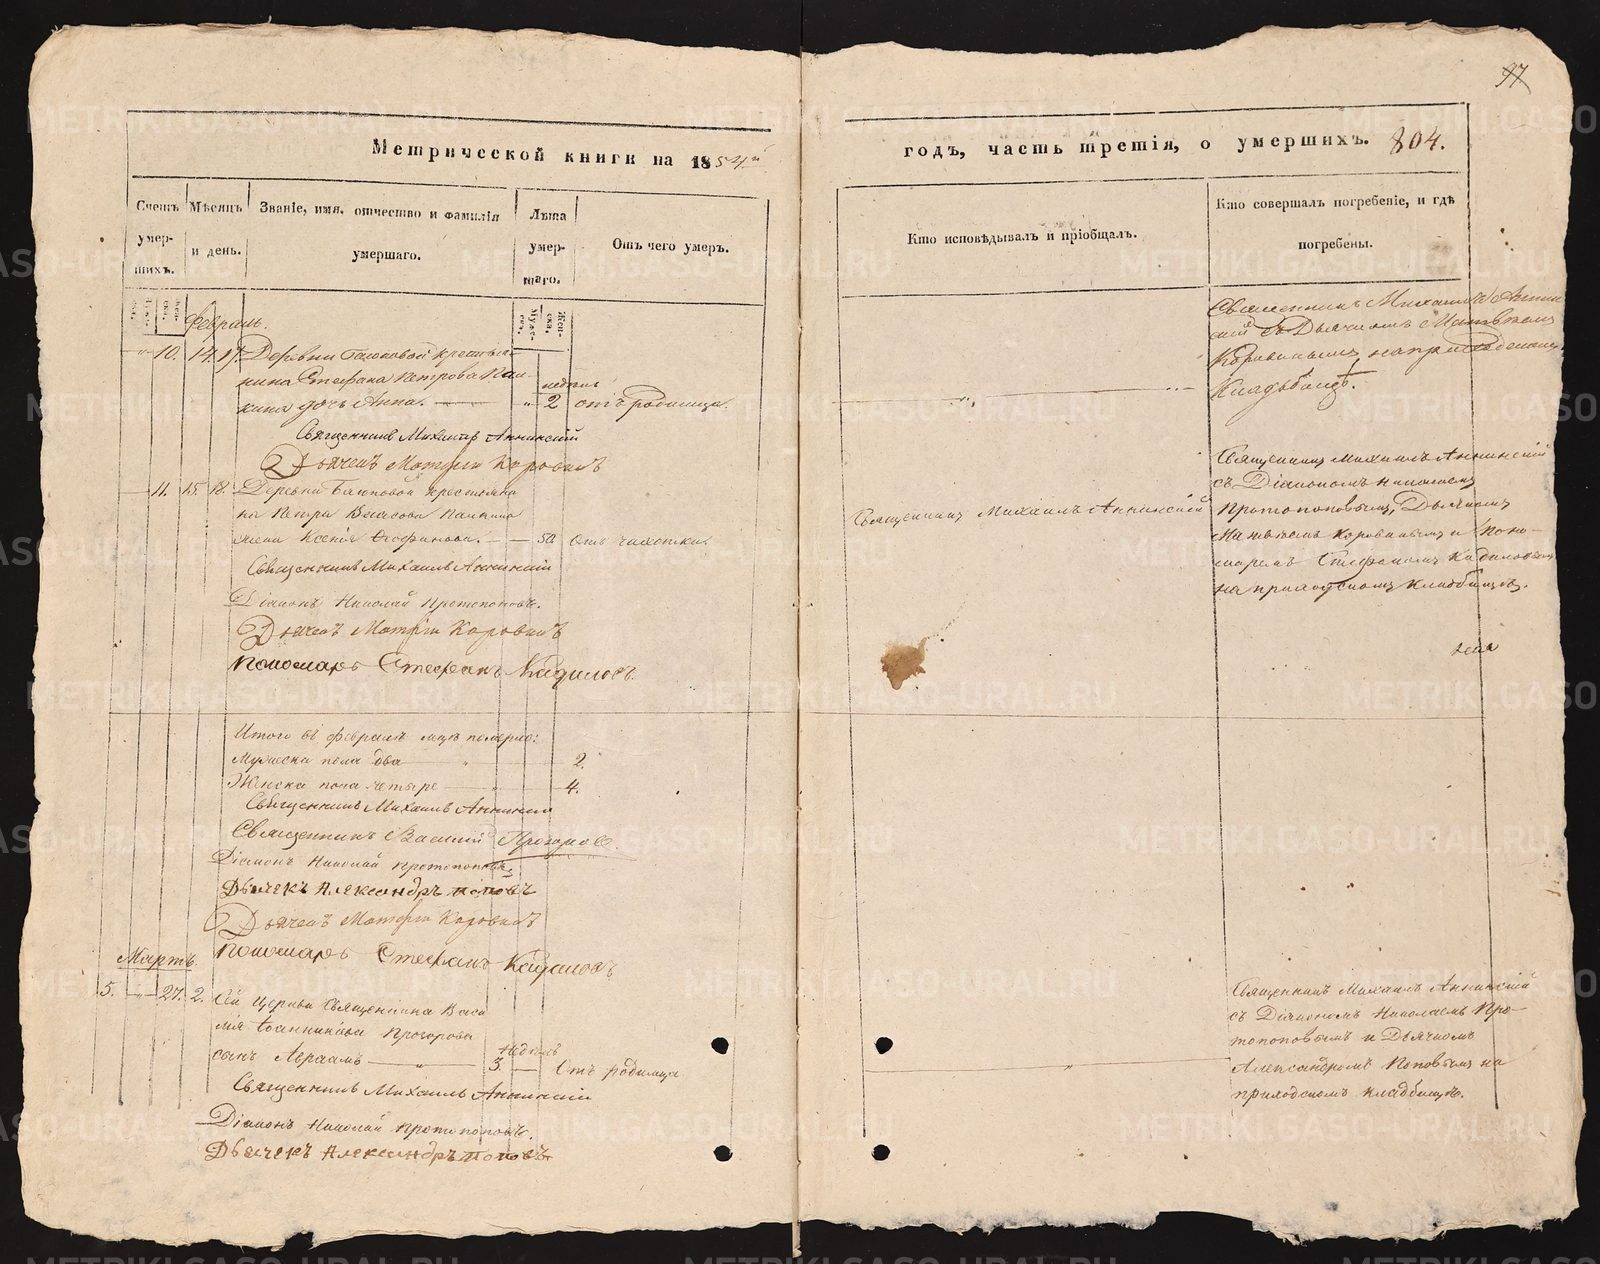 97
Метрической книги на 1854й
годъ, часть третія, о умершихъ. 804.
Счетъ умершихъ.
Мѣсяцъ и день.
Званіе, имя, отчество и фамилія умершаго.
Лѣта умершаго.
Отъ чего умеръ.
Кто исповѣдывалъ и пріобщалъ.
Кто совершалъ погребеніе, и гдѣ погребены.
Февраль.
10. 14. 17. Деревни крестья-
нина Стефана Петрова
дочь Анна. недѣль 2 отъ родимца.
Священникъ Михаилъ Аннинскій
Дьячекъ Матѳій Коровинъ
Священникъ Михаилъ Аннин-
скій съ Дьячкомъ Матвѣемъ
Коровинымъ на приходскомъ
Кладбищѣ.
11. 15. 18. Деревни крестьяни-
на Петра Власова
жена Ксенія 50. Отъ чахотки.
Священникъ Михаилъ Аннинскій
Діаконъ Николай Протопоповъ.
Дьячекъ Матѳій Коровинъ
Пономарь Стефанъ Кадиловъ.
Священникъ Михаилъ Аннинскій
Священникъ Михаилъ Аннинскій
съ Діакономъ Николаемъ
Протопоповымъ, Дьячкомъ
Матвѣемъ Коровинымъ и Поно-
маремъ Стефаномъ Кадиловымъ
на приходскомъ кладбищѣ.
Итого въ Февралѣ мцѣ померло:
Мужеска пола два 2.
Женска пола четыре 4.
Священникъ Михаилъ Аннинскій
Священникъ Василій Прозоровъ.
Діаконъ Николай Протопоповъ
Дьячекъ Александръ Поповъ
Дьячекъ Матѳій Коровинъ
Пономарь Стефанъ Кадиловъ
Мартъ.
5. 27. 2. Сей Церкви Священника Васи-
лія Іоанникіева Прозорова
сынъ недѣль 3. Отъ родимца
Священникъ Михаилъ Аннинскій
Діаконъ Николай Протопоповъ.
Дьячекъ Александръ Поповъ
Священникъ Михаилъ Аннинскій
съ Діакономъ Николаемъ Про-
топоповымъ и Дьячкомъ
Александромъ Поповымъ на
приходскомъ кладбищѣ.
METRIKI.GASO-URAL.RU